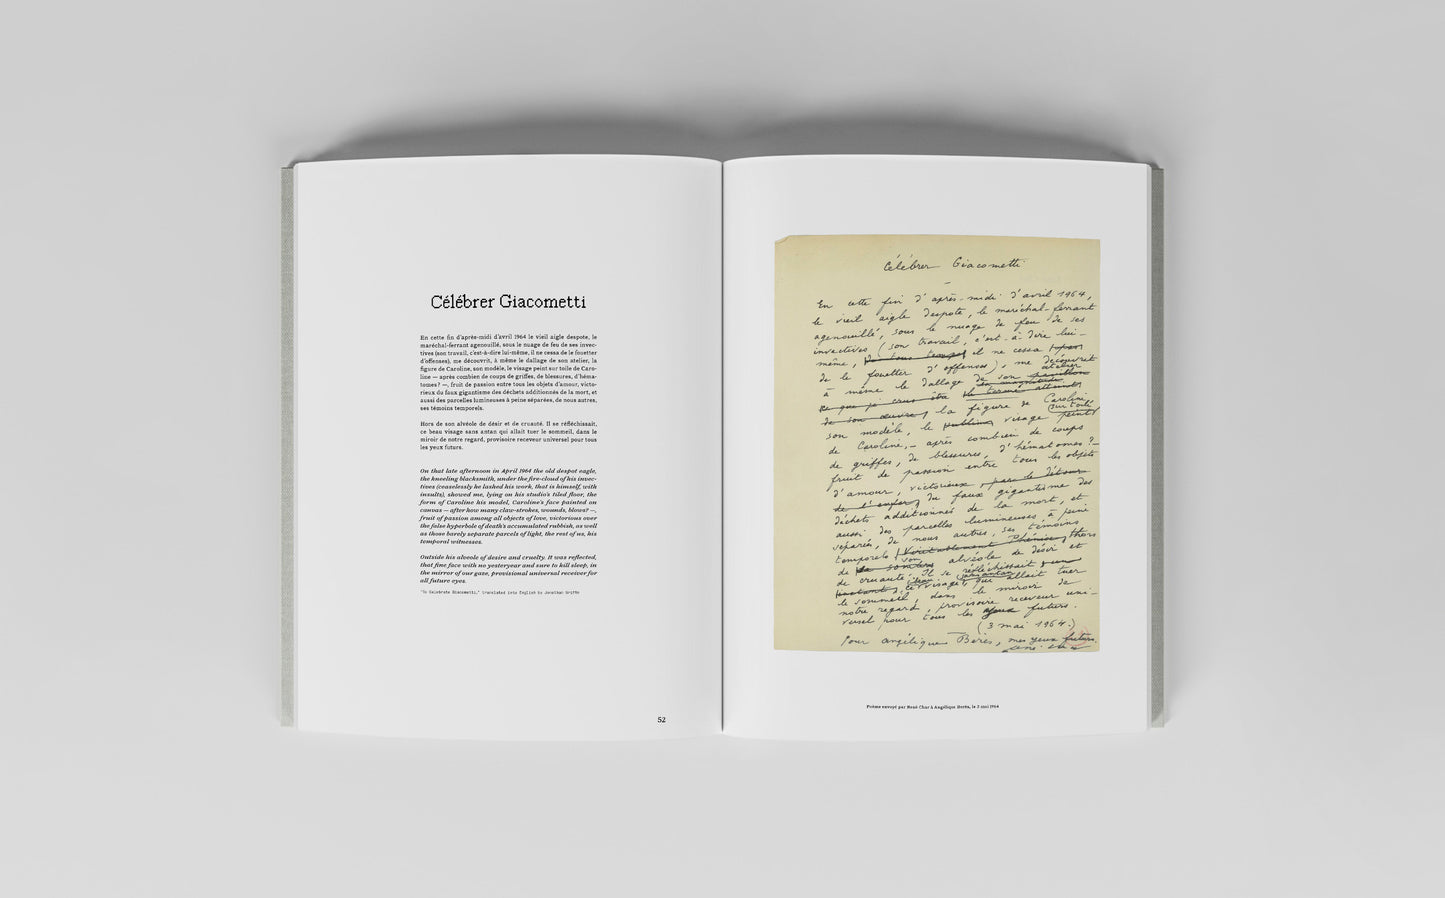 Célébrer Giacometti
En cette fin d'après-midi d'avril 1964 le vieil aigle despote, le
maréchal-ferrant agenouillé, sous le nuage de feu de ses invec-
tives (son travail, c'est-à-dire lui-même, il ne cessa de fouetter
d'offenses), me découvrit, à même le dallage de son atelier, la
figure de Caroline, son modèle, le visage peint sur toile de Caro-
line — après combien de coups de griffes, de blessures, d'héma-
tomes? —, fruit de passion entre tous les objets d'amour, victo-
rieux du faux gigantisme des déchets additionnés de la mort, et
aussi des parcelles lumineuses à peine séparées, de nous autres,
ses témoins temporels.
Hors de son alvéole de désir et de cruauté. Il se réfléchissait,
ce beau visage sans antan qui allait tuer le sommeil, dans le
miroir de notre regard, provisoire receveur universel pour tous
les yeux futurs.
On that late afternoon in April 1964 the old despot eagle,
the kneeling blacksmith, under the fire-cloud of his invec-
tives (ceaselessly he lashed his work, that is himself, with
insults), showed me, lying on his studio's tiled floor, the
form of Caroline his model, Caroline's face painted on
canvas — after how many claw-strokes, wounds, blows? —,
fruit of passion among all objects of love, victorious over
the false hyperbole of death's accumulated rubbish, as well
as those barely separate parcels of light, the rest of us, his
temporal witnesses.
Outside his alveole of desire and cruelty. It was reflected,
that fine face with no yesteryear and sure to kill sleep, in
the mirror of our gaze, provisional universal receiver for
all future eyes.
"To Celebrate Giacometti," translated into English by Jonathan Griffin
52
Célébrer Giacometti
En cette fin d'après-midi d'avril 1964,
le vieil aigle despote, le maréchal-ferrant
agenouillé, sous le nuage de feu de ses
invectives (son travail, c'est-à-dire lui-
même, il ne cessa
de le fouetter d'offenses), me découvrit
atelier
à même le dallage de son pavillon
ce que je crus être
de son œuvre, la figure de Caroline,
sur toile
son modèle, le visage peint
de Caroline, – après combien de coups
de griffes, de blessures, d'hématomes? –
fruit de passion entre tous les objets
d'amour, victorieux, par le détour
de l'enfer, du faux gigantisme des
déchets additionnés de la mort, et
aussi des parcelles lumineuses à peine
séparées, de nous autres, ses témoins
temporels. Hors
son
de alvéole de désir et
de cruauté. Il se réfléchissait
beau sans antan
ce visage, qui allait tuer
le sommeil, dans le miroir de
notre regard, provisoire receveur uni-
versel pour tous les yeux futurs.
(3 mai 1964.)
Pour Angélique Berès, mes yeux futurs.
Poème envoyé par René Char à Angélique Berès, le 3 mai 1964